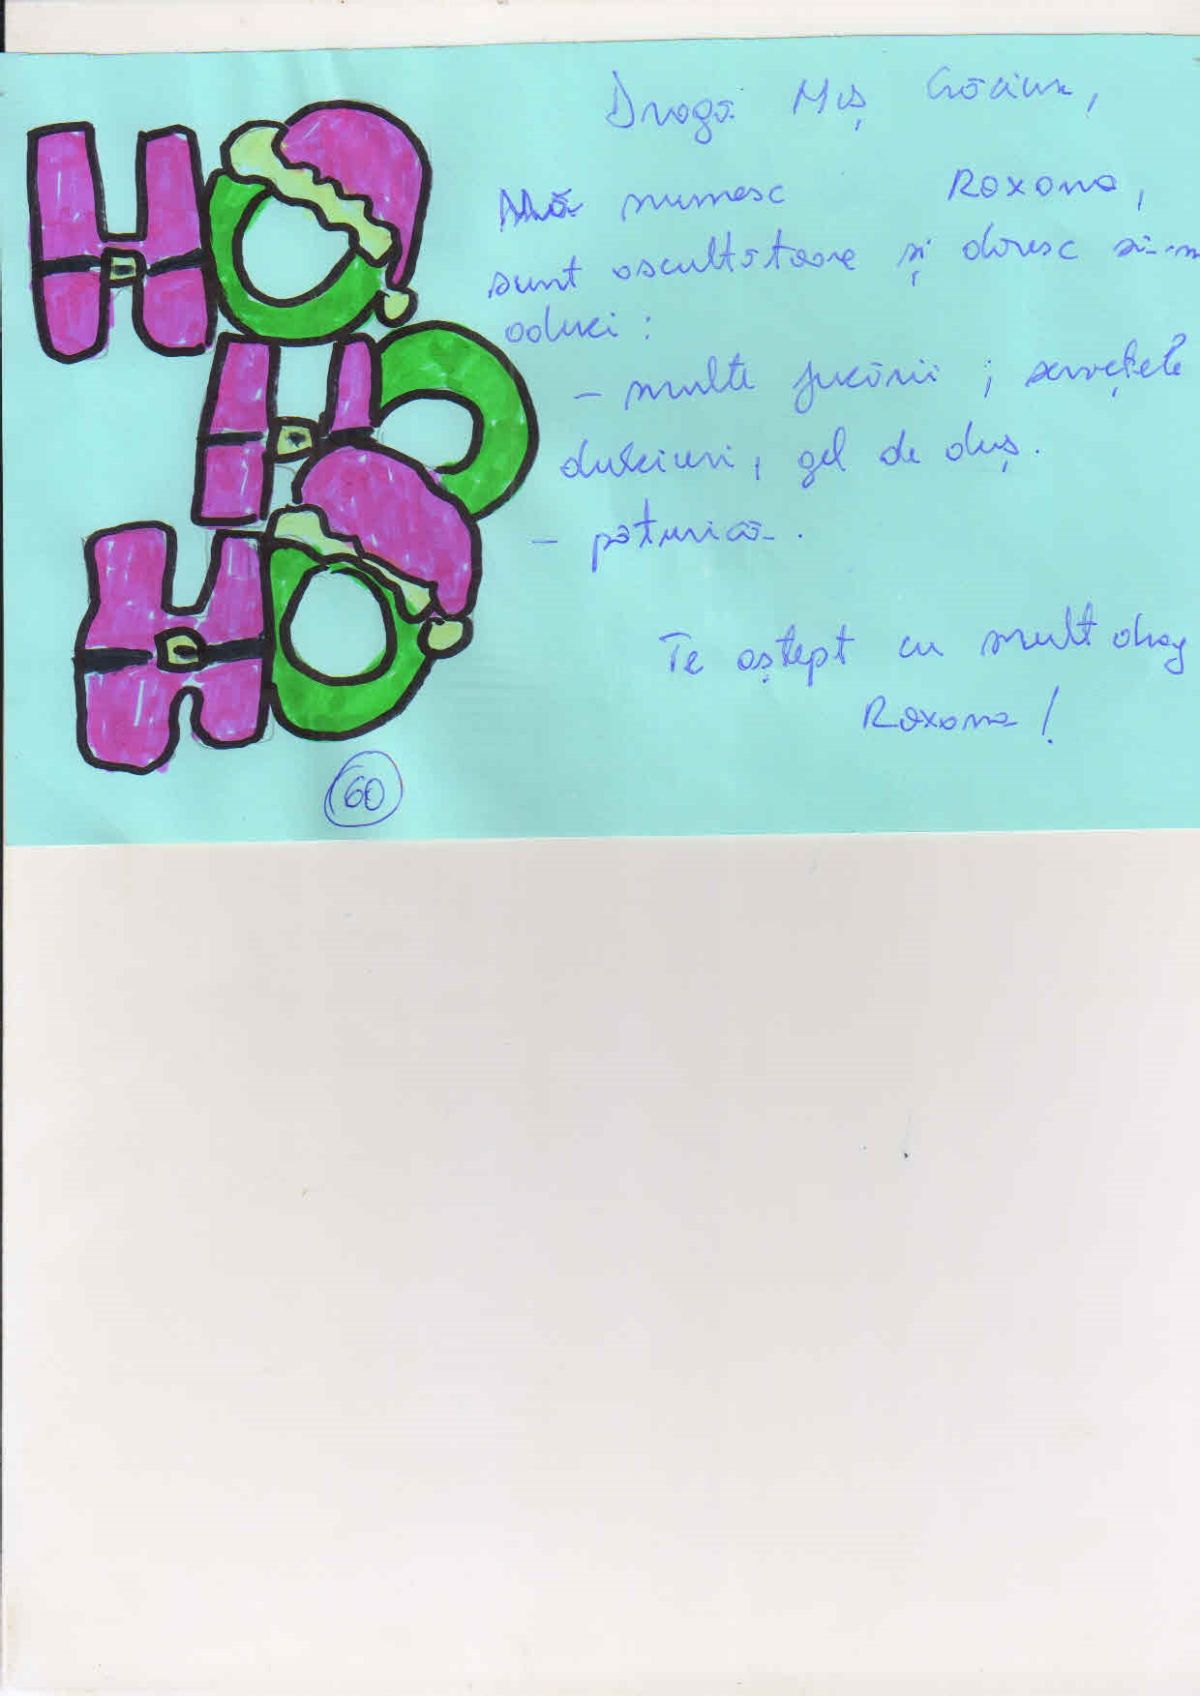 HO
HO
HO
60
Dragă Moș Crăciun,
Mă numesc Roxana,
sunt ascultătoare și doresc să-mi
aduci:
- multe jucării; șervețele
dulciuri, gel de duș.
- păturică.
Te aștept cu mult drag
Roxana!